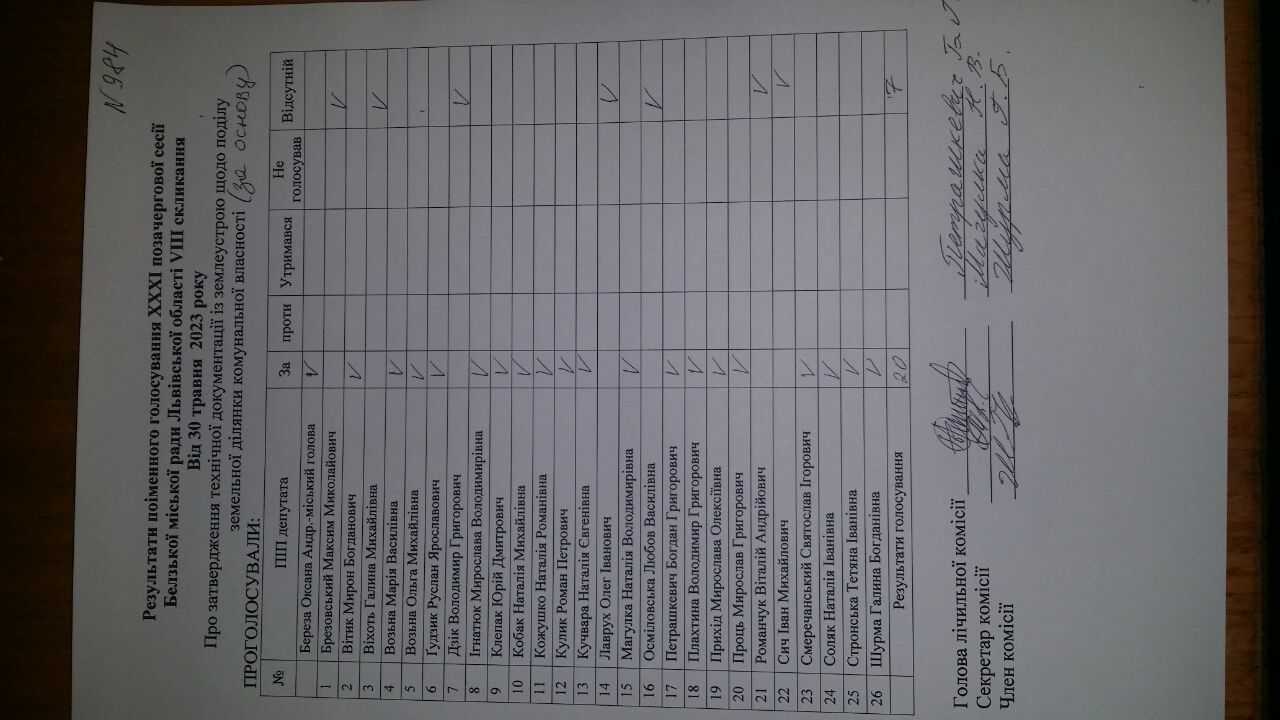 N 984
Результати поіменного голосування XXXI позачергової сесії
Белзької міської ради Львівської області VIII скликання
Від 30 травня 2023 року
Про затвердження технічної документації із землеустрою щодо поділу
земельної ділянки комунальної власності (за основу)
ПРОГОЛОСУВАЛИ:
№ ПІП депутата За проти Утримався Не голосував Відсутній
Береза Оксана Андр.-міський голова V
1 Брезовський Максим Миколайович V
2 Вітик Мирон Богданович V
3 Вхоть Галина Михайлівна V
4 Возьна Марія Василівна V
5 Возьна Ольга Михайлівна V
6 Гудзик Руслан Ярославович V
7 Дзік Володимир Григорович V
8 Ігнатюк Мирослава Володимирівна V
9 Клепак Юрій Дмитрович V
10 Кобак Наталія Михайлівна V
11 Кожушко Наталія Романівна V
12 Кулик Роман Петрович V
13 Кучвара Наталія Євгенівна V
14 Лаврух Олег Іванович V
15 Магулка Наталія Володимирівна V
16 Осміловська Любов Василівна V
17 Петрашкевич Богдан Григорович V
18 Плахтина Володимир Григорович V
19 Прихід Мирослава Олексіївна V
20 Проць Мирослав Григорович V
21 Романчук Віталій Андрійович V
22 Сич Іван Михайлович V
23 Смеречанський Святослав Ігорович V
24 Соляк Наталія Іванівна V
25 Стронська Тетяна Іванівна V
26 Шурма Галина Богданівна V
Результати голосування 20 7
Голова лічильної комісії Петрашкевич
Секретар комісії Магулка Н.В.
Член комісії Шурма Г.Б.